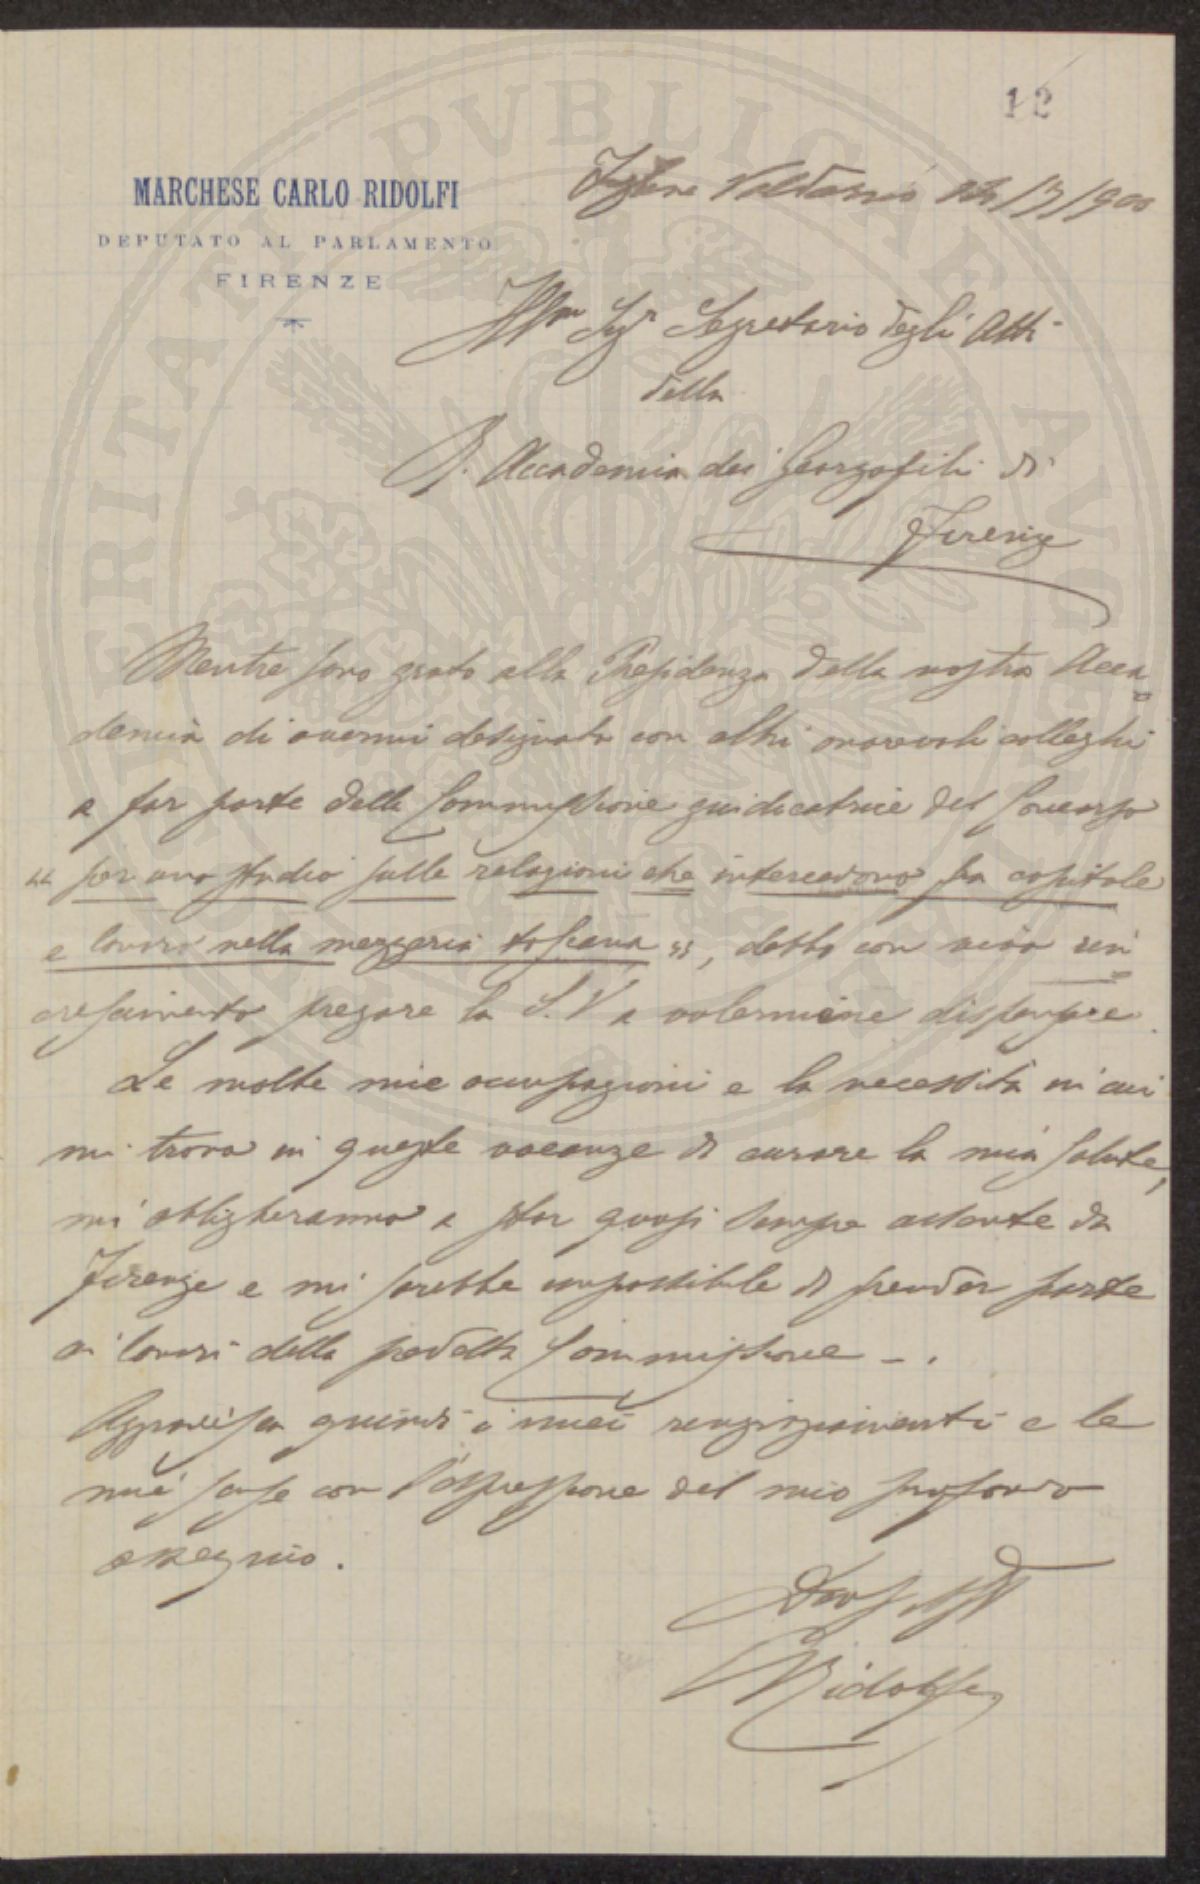 12
MARCHESE CARLO RIDOLFI
DEPUTATO AL PARLAMENTO
FIRENZE
Figline Valdarno /7/900
Illmo Sigr Segretario degli Atti
della
R. Accademia dei Georgofili di
Firenze
Mentre sono grato alla Presidenza della nostra Acca
demia di avermi designato con altri onorevoli colleghi
a far parte della Commissione giudicatrice del Concorso
" per uno studio sulle relazioni che intercedono fra capitale
e lavoro nella mezzeria toscana ", debbo con vivo rin
crescimento pregare la S.V a volermene dispensare.
Le molte mie occupazioni e la necessità in cui
mi trovo in queste vacanze di curare la mia salute,
mi obbligheranno a star quasi sempre assente da
Firenze e mi sarebbe impossibile di prender parte
ai lavori della predetta Commissione - .
Aggradisca quindi i miei ringraziamenti e le
mie scuse con l'espressione del mio profondo
ossequio.
Devs
Ridolfi
VERITATI PVBLICAE